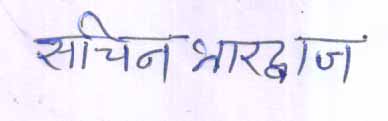 सचिन भारद्वाज